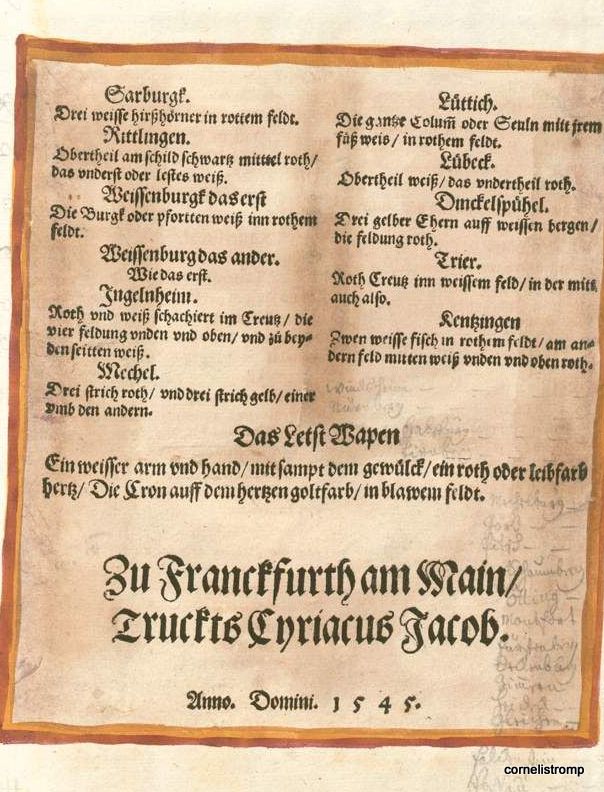 Sarburgk.
Drei weisse hirßhörner in rottem feldt.
Rittlingen.
Obertheil am schild schwartz mittel roth/
das vnderst oder lestes weiß.
Weissenburgk das erst
Die Burgk oder pforten weiß inn rothem
feldt.
Weissenburg das ander.
Wie das erst.
Jngelnheim.
Roth vnd weiß schachiert im Creutz/ die
vier feldung vnden vnd oben/ vnd zů bey-
den seitten weiß.
Mechel.
Drei strich roth/ vnd drei strich gelb/ einer
vmb den andern.
Lüttich.
Die gantze Columm oder Seuln mitt jrem
füß weis/ in rothem feldt.
Lübeck.
Obertheil weiß/ das vndertheil roth.
Dinckelspühel.
Drei gelber Ehern auff weissen bergen/
die feldung roth.
Trier.
Roth Creutz inn weissem feld/ in der mits
auch also.
Kentzingen
Zwen weisse fisch in rothem feldt/ am an-
dern feld mitten weiß vnden vnd oben roth.
Das Letst Wapen
Ein weisser arm vnd hand/ mit sampt dem gewülck/ ein roth oder leibfarb
hertz/ Die Cron auff dem hertzen goltfarb/ in blawem feldt.
Zu Franckfurth am Main/
Truckts Cyriacus Jacob.
Anno. Domini. 1 5 4 5.
cornelistromp